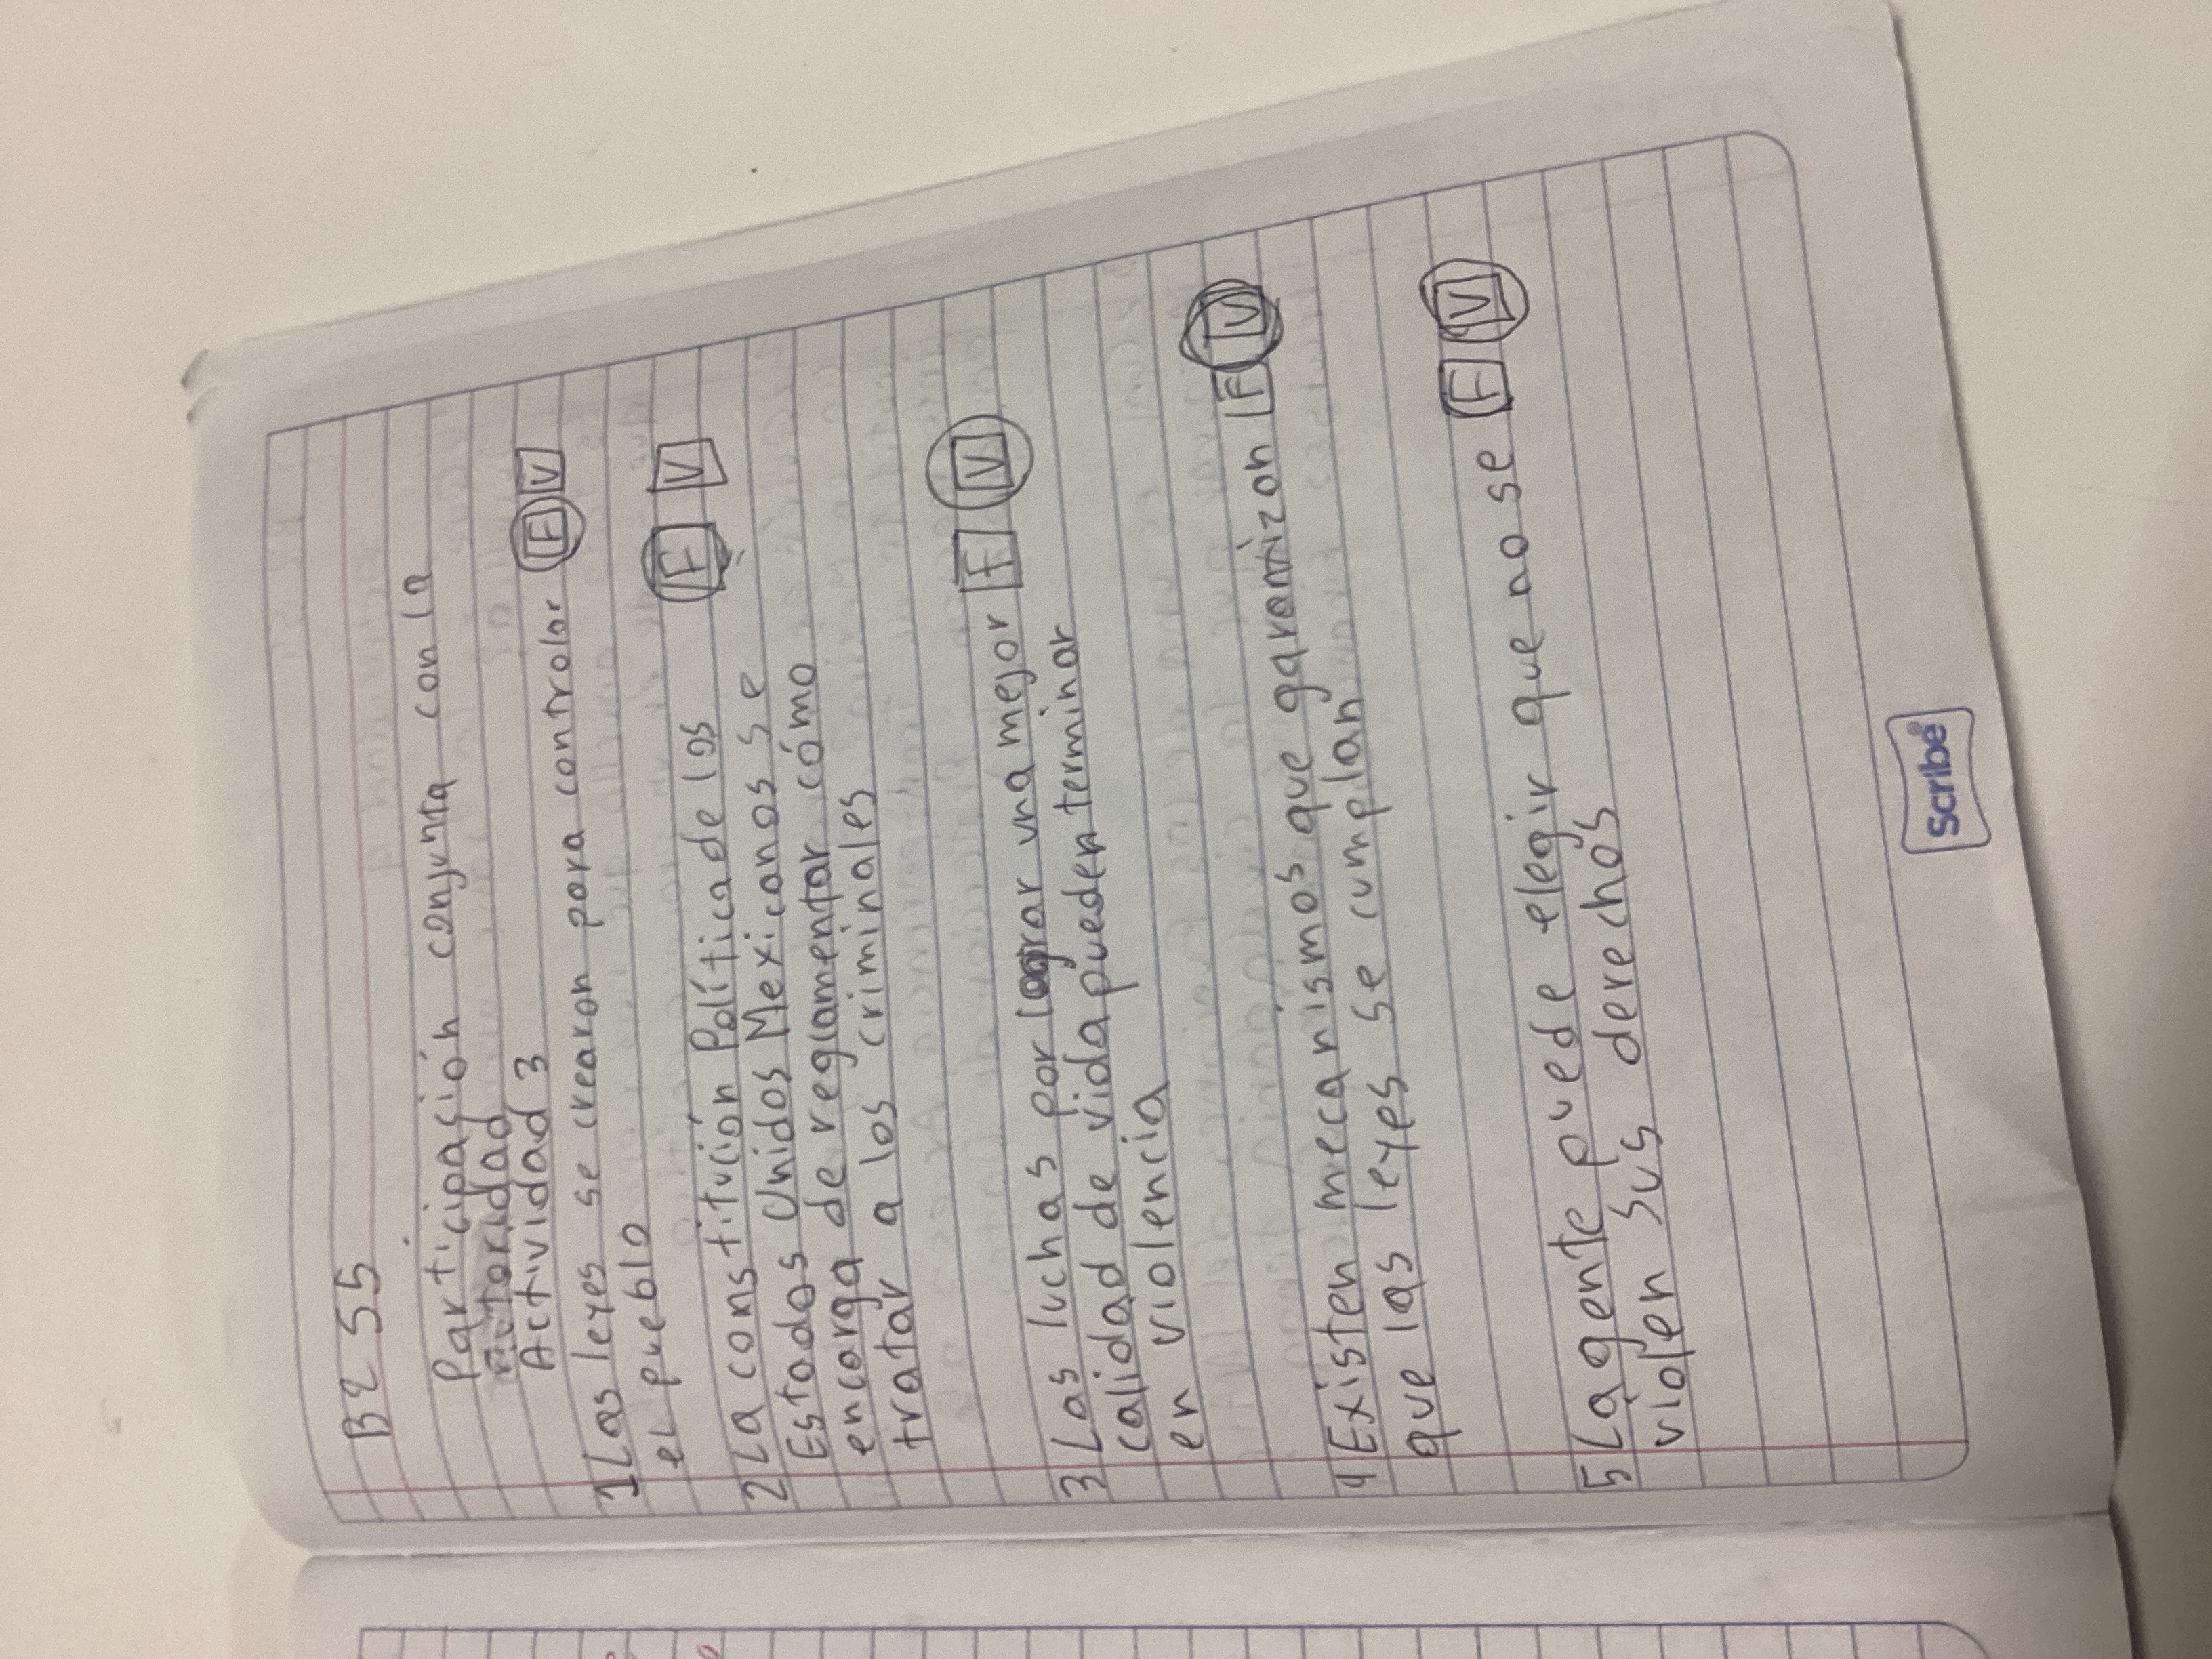 B2 S5
Participación conjunta con la
autoridad
Actividad 3
1 Las leyes se crearon para controlar F V
el pueblo
2 La constitución Política de los F V
Estados Unidos Mexicanos se
encarga de reglamentar cómo
tratar a los criminales
3 Las luchas por lograr una mejor F V
calidad de vida pueden terminar
en violencia
4 Existen mecanismos que garantizan F V
que las leyes se cumplan
5 La gente puede elegir que no se F V
violen sus derechos
Scribe